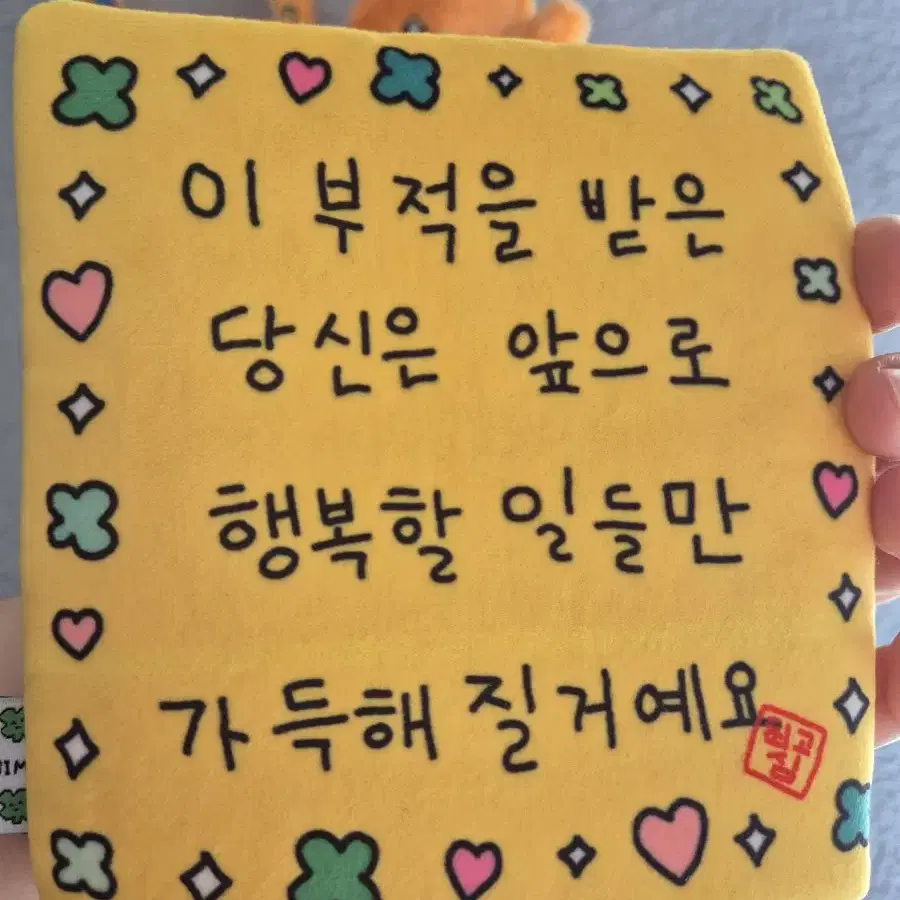 이 부적을 받은
당신은 앞으로
행복할 일들만
가득해질거예요